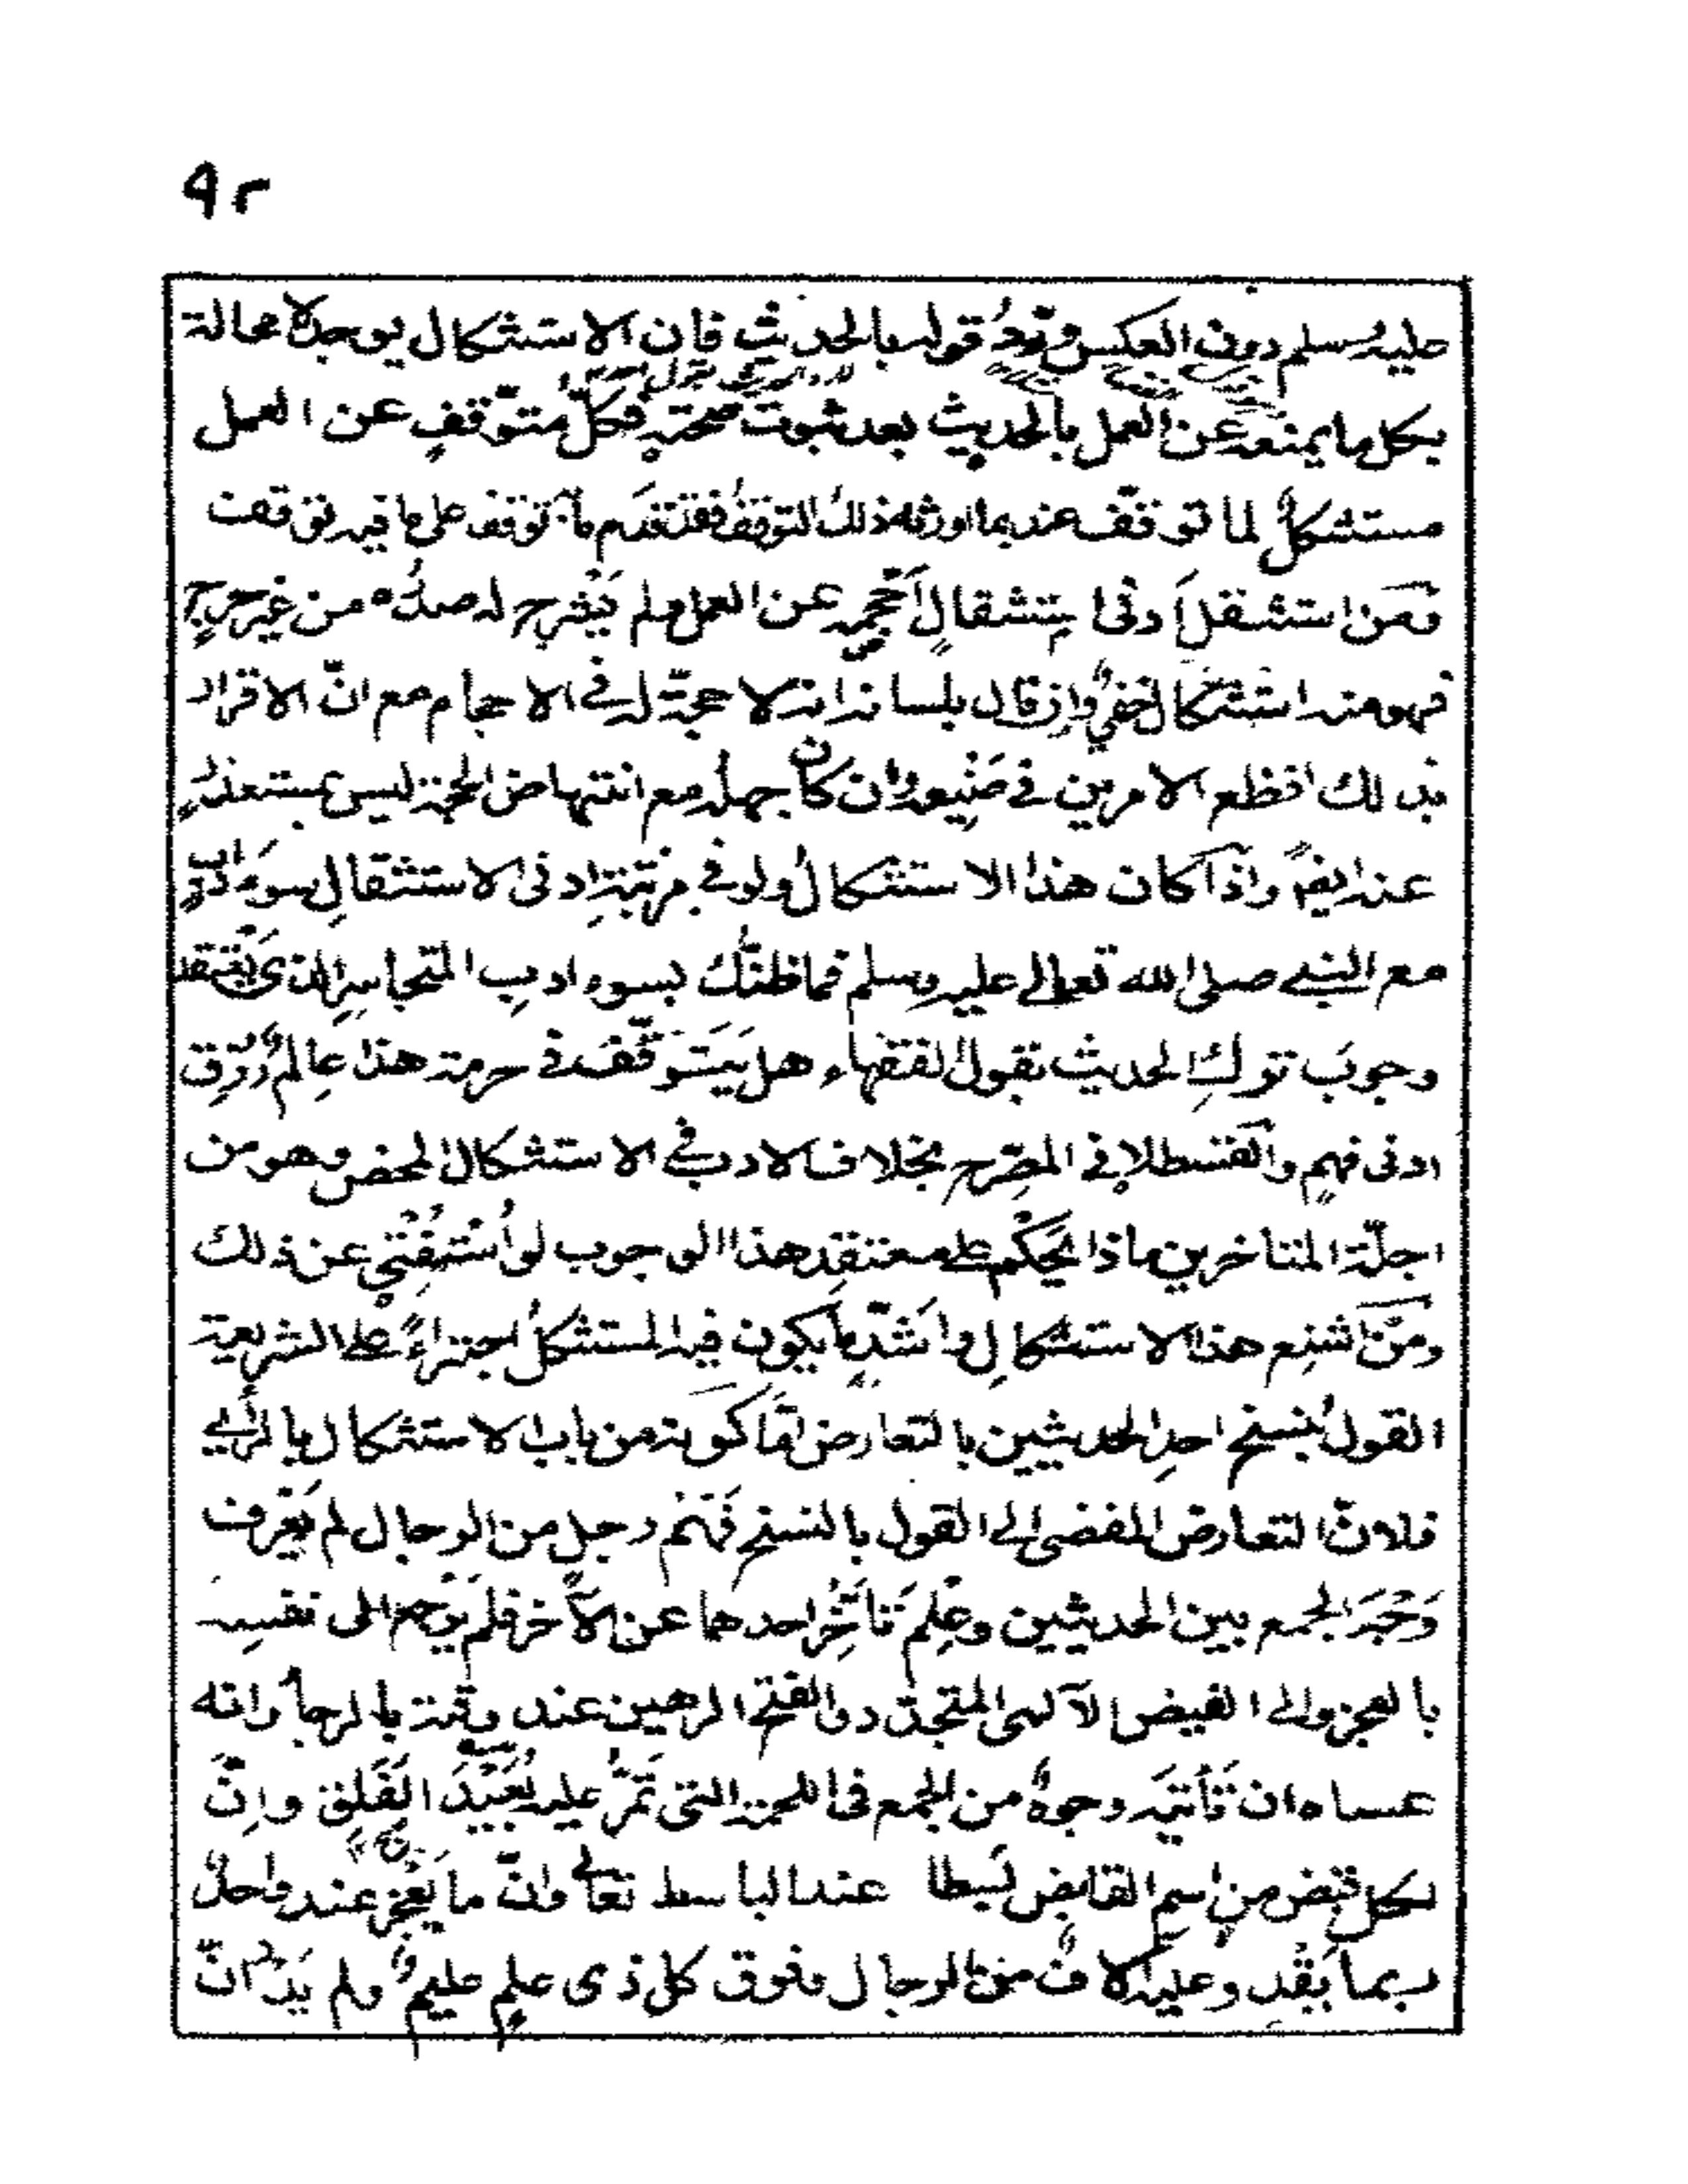 ٩٢
عليه وسلم دون العكس ورد قوله بالحديث فان الاستشكال يوجد لا محالة
بكل ما يمنعه عن العمل بالحديث بعد ثبوت صحته فكل متوقف عن العمل
مستشكل لما توقف عنه بما اورثه ذلك التوقف فقد تقدم ما توقف على ما فيه توقف
فمن استثقل ادنى استثقال احجمه عن العمل ولم ينشرح له صدره من غير حرج
فهو منه استشكال خفي وان قال بلسانه انه لا حجة له في الاحجام مع ان الاقرار
بذلك افظع الامرين في صنيعه وان كان جهله مع انتهاض الحجة ليس بمستعذر
عنه ايضا واذا كان هذا الاستشكال ولو في مرتبة ادنى الاستثقال سوء ادب
مع النبي صلى الله تعالى عليه وسلم فما ظنك بسوء ادب المتجاسر الذي يعتقد
وجوب ترك الحديث بقول الفقهاء هل يتوقف في حرمة هذا عالم رزق
ادنى فهم والقسطلاني المصرح بخلاف الادب في الاستشكال المحض وهو من
اجلة المتاخرين ماذا يحكم على معتقد هذا الوجوب لو استفتي عن ذلك
ومن اشنع هذا الاستشكال واشد ما يكون فيه المستشكل اجتراء على الشريعة
القول بنسخ احد الحديثين بالتعارض اما كونه من باب الاستشكال بالرأي
فلان التعارض المفضي الى القول بالنسخ فهم رجل من الرجال لم يعرف
وجه الجمع بين الحديثين وعلم تأخر احدهما عن الآخر فلم يرجع الى نفسه
بالعجز والى الفيض الآلهي المتجدد والفتح الرهين عند وقته بالرجاء وانه
عساه ان تأتيه وجوه من الجمع في اللمحة التي تمر عليه بعيد الفلق وان
لكل قبض من اسم القابض بسطا عند الباسط تعالى وان ما يعجز عنه واحد
ربما يقدر عليه الاف من الرجال وفوق كل ذي علم عليم ولم يدر ان